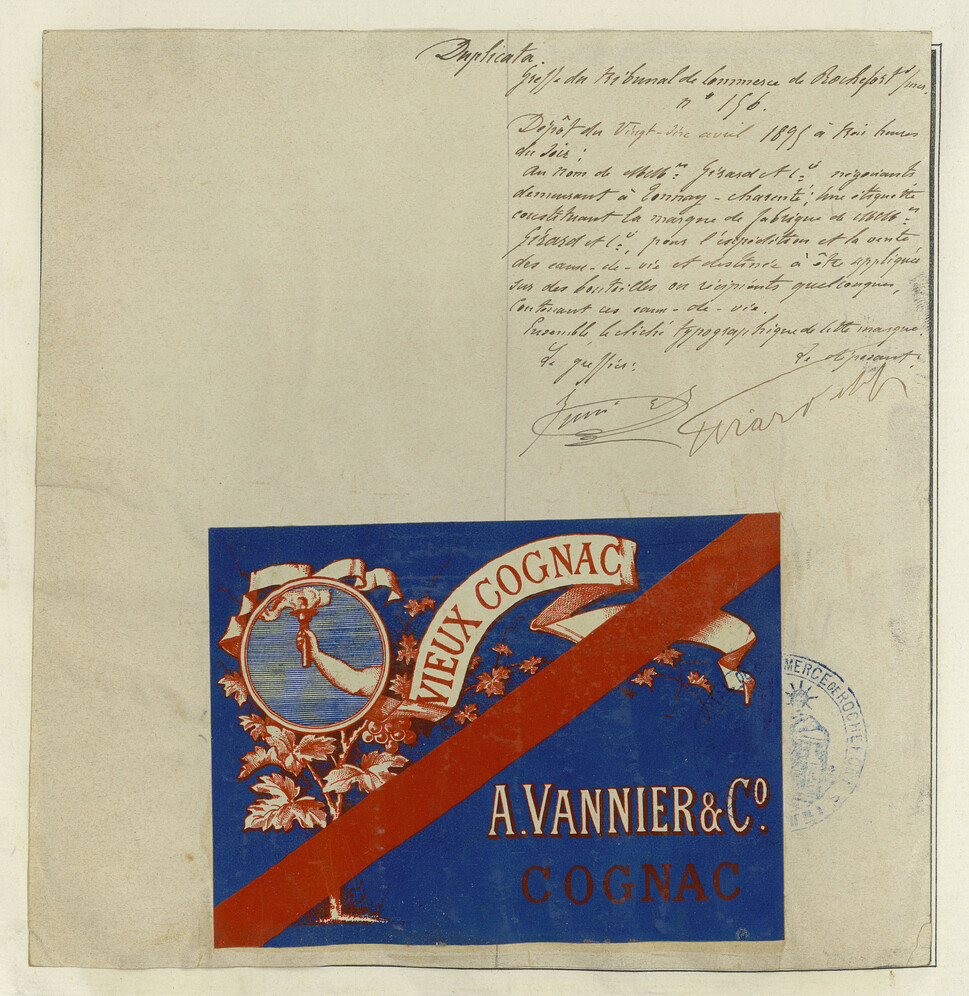 Duplicata.
Greffe du Tribunal de Commerce de Rochefort s/mer.
n° 156.
Dépôt du Vingt-six avril 1895 à trois heures
du soir;
Au nom de MM.rs Gérard et Cie négociants
demeurant à Tonnay-charente; Une étiquette
constituant la marque de fabrique de MM.rs
Gérard et Cie, pour l'expédition et la vente
des eaux-de-vie et destinée à être appliquée
sur des bouteilles ou récipients quelconques,
contenant ces eaux-de-vie.
Ensemble le cliché typographique de cette marque.
Le greffier: Le déposant:
Girard et Cie
VIEUX COGNAC
A. VANNIER & Co.
COGNAC
MERCE DE ROCHEFORT